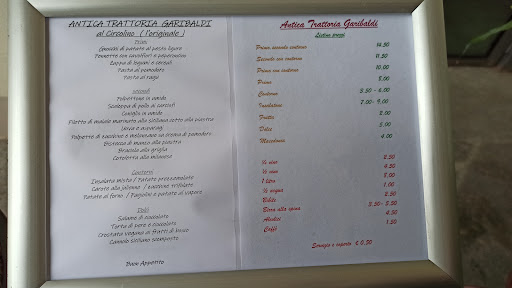 ANTICA TRATTORIA GARIBALDI
al Circolino ( l'originale )
Primi
Gnocchi di patate al pesto ligure
Pennette con cavolfiori e peperoncino
Zuppa di legumi e cereali
Pasta al pomodoro
Pasta al ragù
secondi
Polpettone in umido
Scaloppa di pollo ai carciofi
Coniglio in umido
Filetto di maiale marinato alla siciliana cotto alla piastra
Uova e asparagi
Polpette di zucchine e melanzane su crema di pomodoro
Bistecca di manzo alla piastra
Braciola alla griglia
Cotoletta alla milanese
Contorni
Insalata Mista / Patate prezzemolate
Carote alla julienne / zucchine trifolate
Patate al forno / Fagiolini e patate al vapore
Dolci
Salame di cioccolato
Torta di pere e cioccolato
Crostata vegana ai frutti di bosco
Cannolo siciliano scomposto
Buon Appetito
Antica Trattoria Garibaldi
Listino prezzi
Primo secondo contorno 14.50
Secondo con contorno 11.50
Primo con contorno 10.00
Primo 8.00
Contorno 3.50 - 6.00
Insalatone 7.00 - 9.00
Frutta 3.00
Dolce 5.00
Macedonia 4.00
¼ vino 2.50
½ vino 4.50
1 litro 8.00
½ acqua 1.00
Bibite 2.50
Birra alla spina 2.50 - 5.50
Alcolici 4.50
Caffè 1.50
Servizio e coperto € 0,50